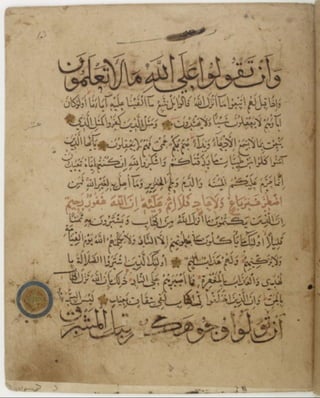 وان تقولوا على الله ما لا تعلمون
واذا قيل لهم اتبعوا ما انزل الله قالوا بل نتبع ما الفينا عليه آباءنا اولو كان
آباؤهم لا يعقلون شيئا ولا يهتدون ومثل الذين كفروا كمثل الذي
ينعق بما لا يسمع الا دعاء ونداء صم بكم عمي فهم لا يعقلون يا ايها الذين
آمنوا كلوا من طيبات ما رزقناكم واشكروا لله ان كنتم اياه تعبدون
انما حرم عليكم الميتة والدم ولحم الخنزير وما اهل به لغير الله فمن
اضطر غير باغ ولا عاد فلا اثم عليه ان الله غفور رحيم
ان الذين يكتمون ما انزل الله من الكتاب ويشترون به ثمنا
قليلا اولئك ما ياكلون في بطونهم الا النار ولا يكلمهم الله يوم القيامة
ولا يزكيهم ولهم عذاب اليم اولئك الذين اشتروا الضلالة با
لهدى والعذاب بالمغفرة فما اصبرهم على النار ذلك بان الله نزل الكتاب
بالحق وان الذين اختلفوا في الكتاب لفي شقاق بعيد ليس البر
ان تولوا وجوهكم قبل المشرق